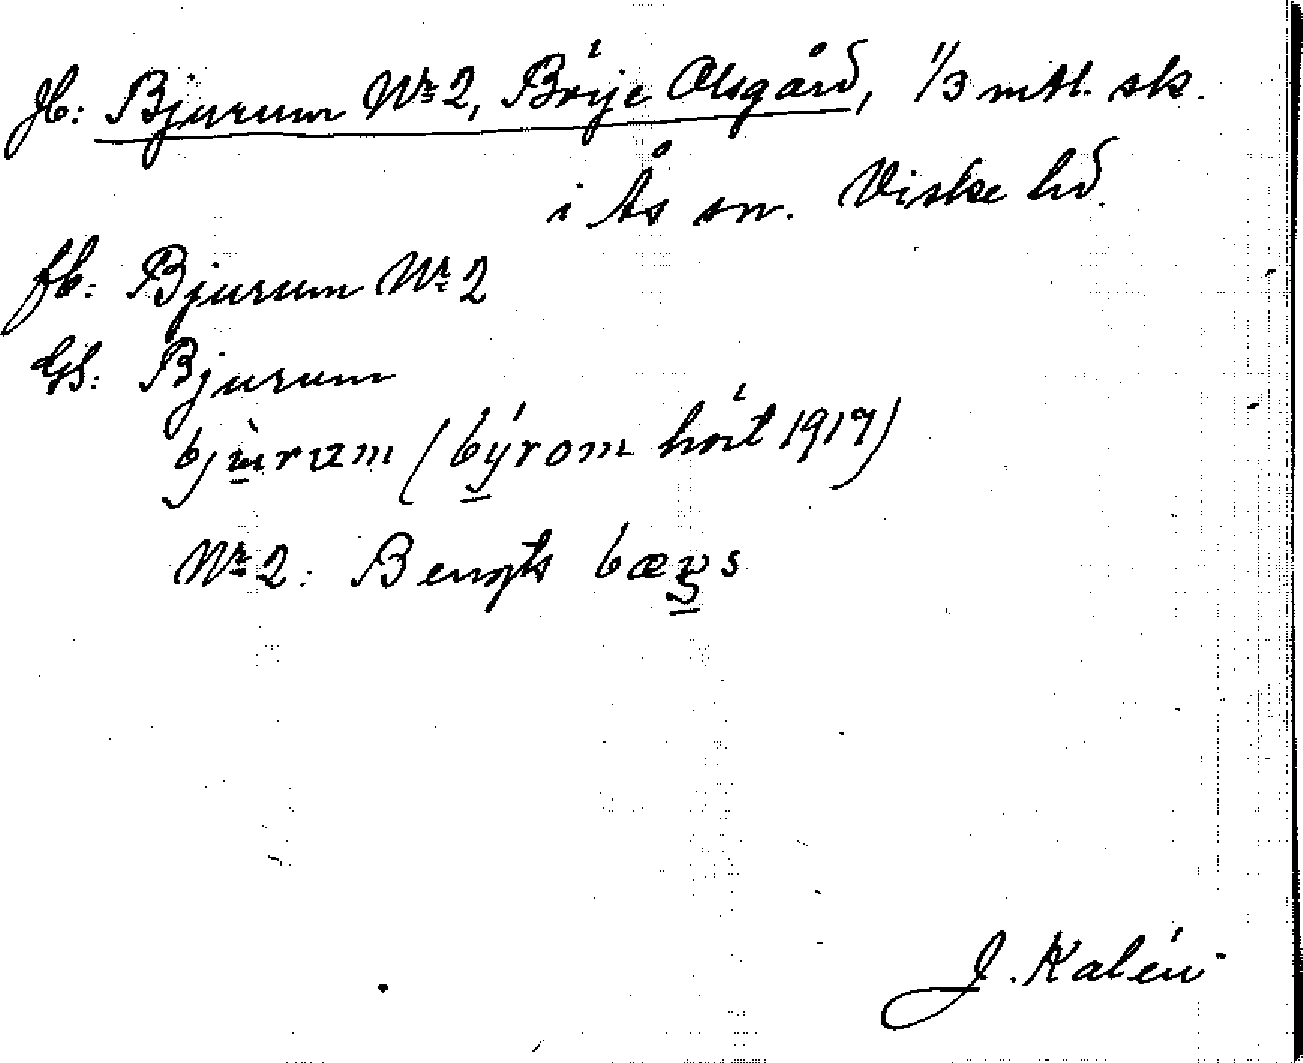 Jb: Bjurum Nr 2, Börje Olsgård, 1/3 mtl. sk.
i Ås sn. Viske hd.
fb: Bjurum Nr 2
GS: Bjurum
(býrom hört 1917)
Nr 2: Bengts
J. Kalén